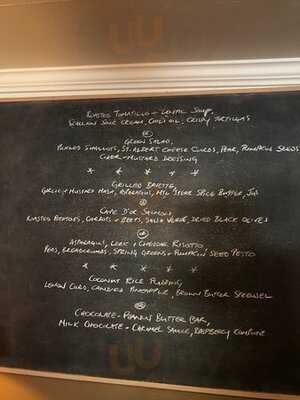 Roasted Tomatillo + Lentil Soup,
Scallion Sour Cream, Chili Oil, Crispy Tortillas
or
Green Salad,
Pickled Shallots, St. Albert Cheese Curds, Pear, Pumpkin Seeds
Cider-Mustard Dressing
* * * * *
Grilled Bavette,
Garlic + Mustard Mash, Asparagus, Mtl Steak Spice Butter, Jus
or
Cape D'or Salmon,
Roasted Potatoes, Carrots + Beets, Salsa Verde, Dried Black Olives
or
Asparagus, Leek + Cheddar Risotto
Peas, Breadcrumbs, Spring Greens + Pumpkin Seed Pesto
* * * * *
Coconut Rice Pudding,
Lemon Curd, Candied Pineapple, Brown Butter Streusel
or
Chocolate-Peanut Butter Bar,
Milk Chocolate-Caramel Sauce, Raspberry Compote